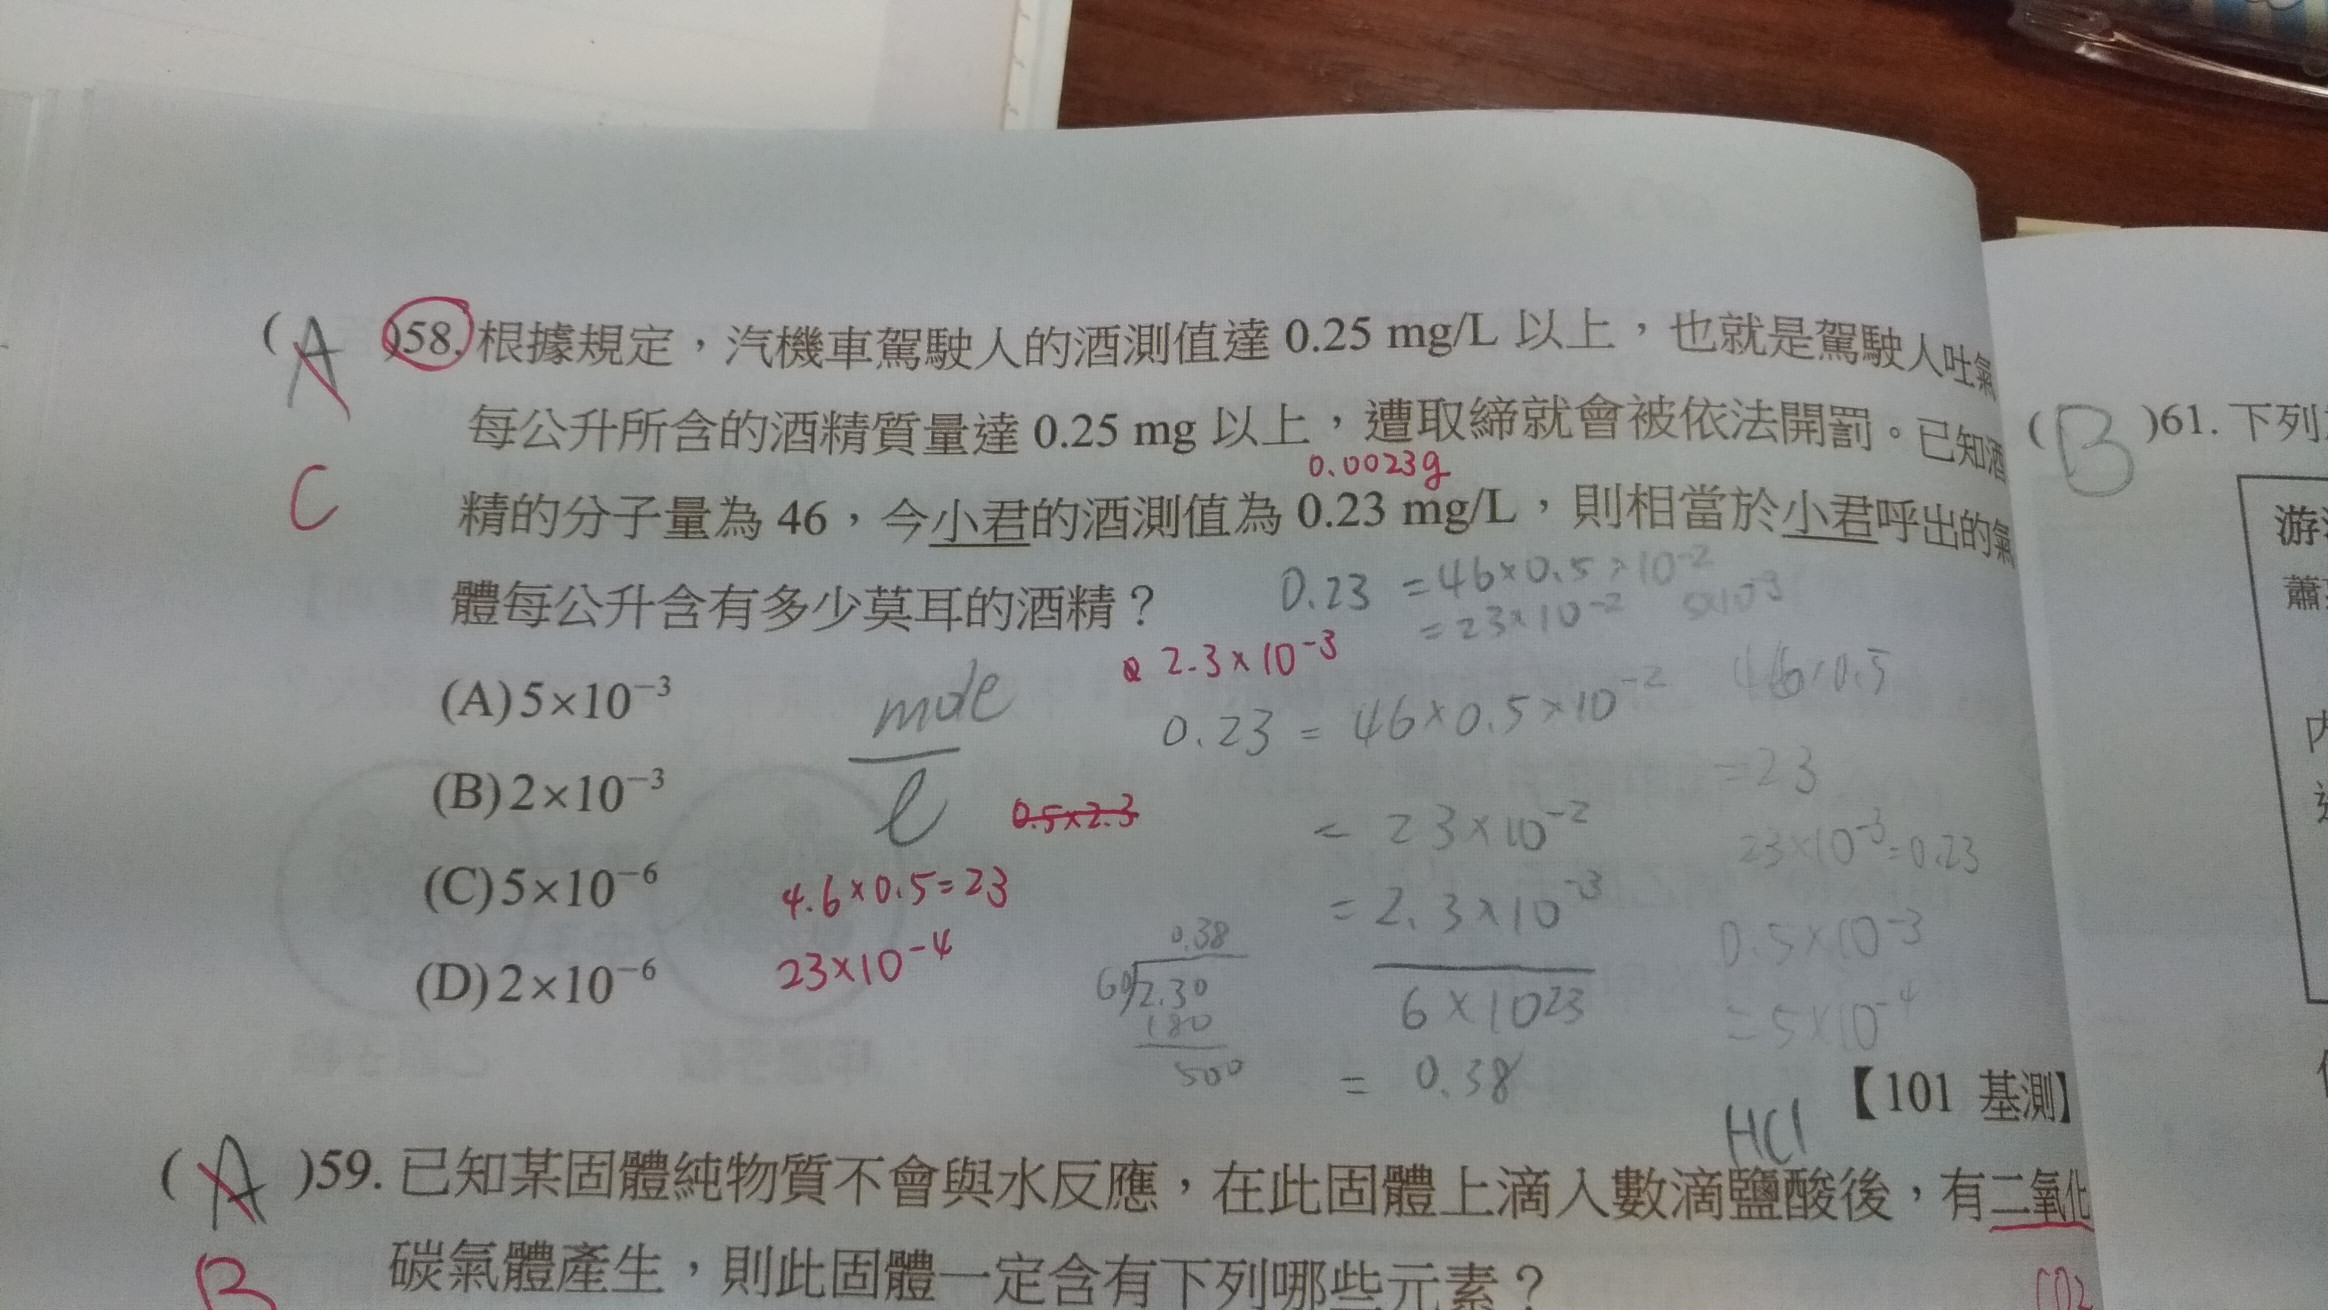 (A)58.根據規定，汽機車駕駛人的酒測值達 0.25 mg/L 以上，也就是駕駛人吐氣
每公升所含的酒精質量達 0.25 mg 以上，遭取締就會被依法開罰。已知酒
0.0023g
C
精的分子量為 46，今小君的酒測值為 0.23 mg/L，則相當於小君呼出的氣
體每公升含有多少莫耳的酒精？
0.23 = 46×0.5×10⁻²
= 23×10⁻² 5×10⁻³
2.3×10⁻³
(A)5×10⁻³
mole
l
0.23 = 46×0.5×10⁻²
46×0.5
= 23
(B)2×10⁻³
0.5×2.3
= 23×10⁻²
23×10⁻³=0.23
(C)5×10⁻⁶
4.6×0.5=23
= 2.3×10⁻³
6×10²³
0.5×10⁻³
= 5×10⁻⁴
(D)2×10⁻⁶
23×10⁻⁴
0.38
60 2.30
180
500
= 0.38
【101 基測】
HCl
(A)59.已知某固體純物質不會與水反應，在此固體上滴入數滴鹽酸後，有二氧化
B
碳氣體產生，則此固體一定含有下列哪些元素？
CO2
(B)61.下列
游